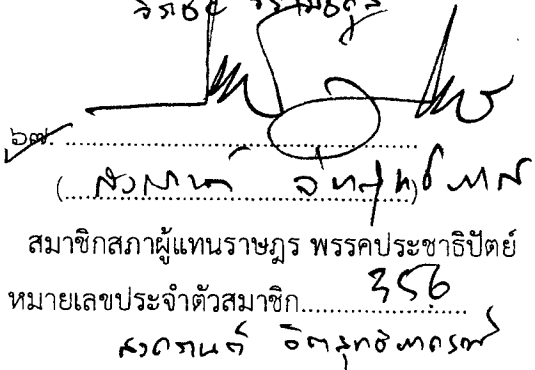 ๖๗. ..................................................
(สงกรานต์ จิตสุทธิภากร)
สมาชิกสภาผู้แทนราษฎร พรรคประชาธิปัตย์
หมายเลขประจำตัวสมาชิก......356......
สงกรานต์ จิตสุทธิภากร